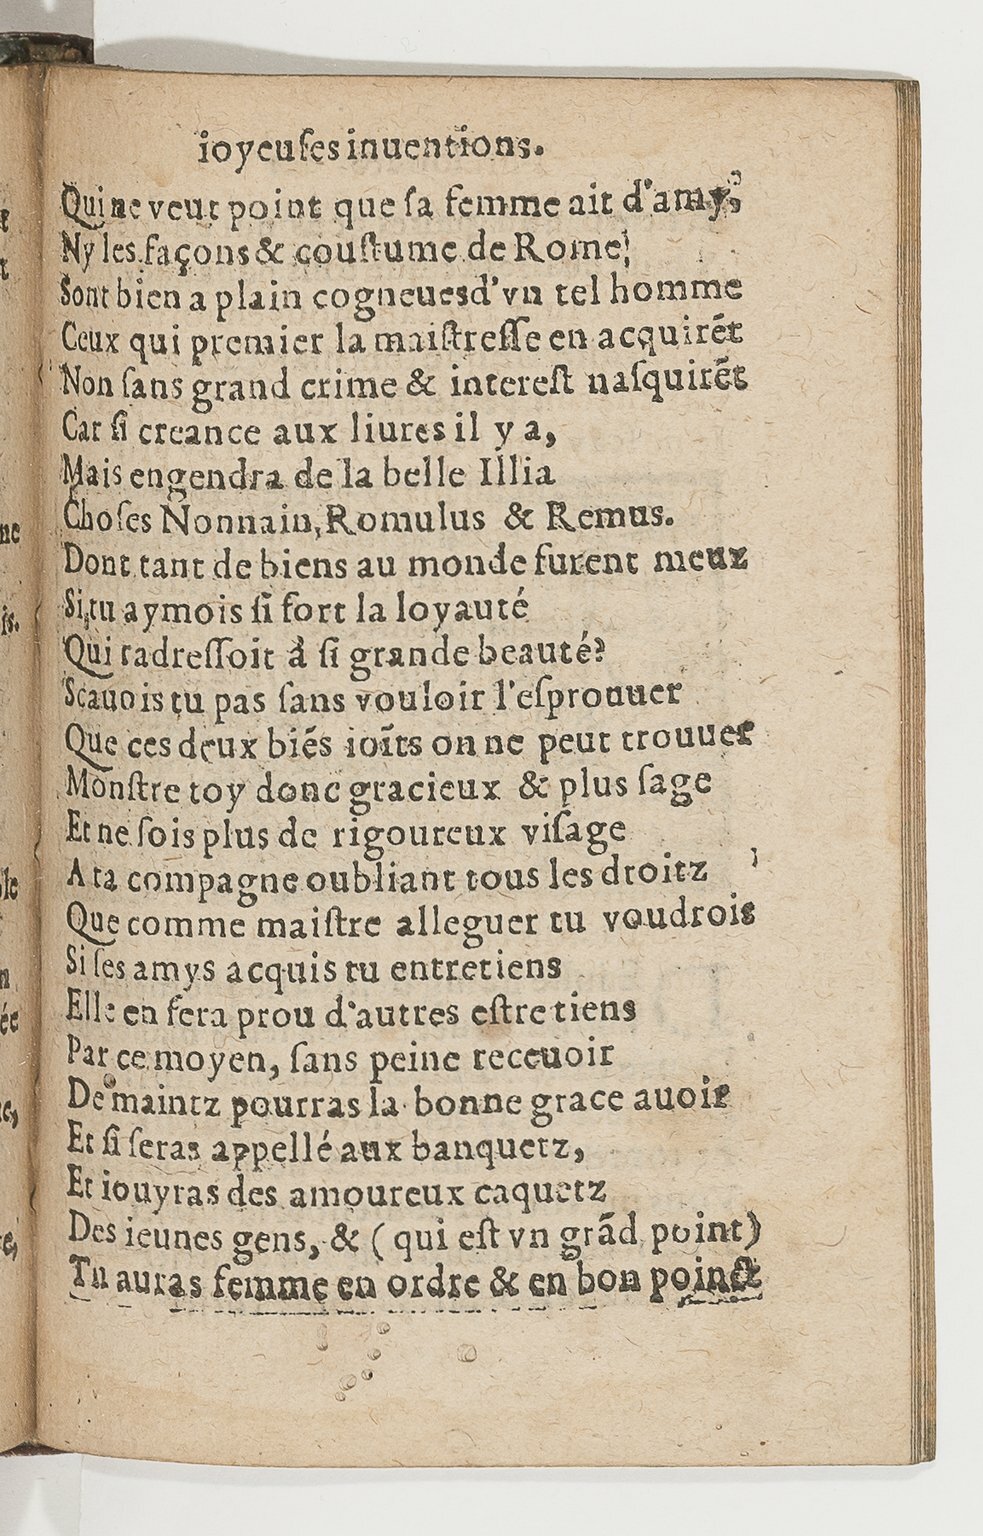 ioyeuſes inuentions.
Qui ne veut point que ſa femme ait d'amy,
Ny les façons & couſtume de Rome,
Sont bien a plain cogneues d'vn tel homme
Ceux qui premier la maiſtreſſe en acquirẽt
Non ſans grand crime & intereſt naſquirẽt
Car ſi creance aux liures il y a,
Mais engendra de la belle Illia
Choſes Nonnain, Romulus & Remus.
Dont tant de biens au monde furent meuz
Si tu aymois ſi fort la loyauté
Qui t'adreſſoit à ſi grande beauté?
Scauois tu pas ſans vouloir l'eſprouuer
Que ces deux biẽs ioĩts on ne peut trouuer
Monſtre toy donc gracieux & plus ſage
Et ne ſois plus de rigoureux viſage
A ta compagne oubliant tous les droitz
Que comme maiſtre alleguer tu voudrois
Si ſes amys acquis tu entretiens
Elle en fera prou d'autres eſtre tiens
Par ce moyen, ſans peine receuoir
De maintz pourras la bonne grace auoir
Et ſi ſeras appellé aux banquetz,
Et iouyras des amoureux caquetz
Des ieunes gens, & (qui eſt vn grãd point)
Tu auras femme en ordre & en bon poinct